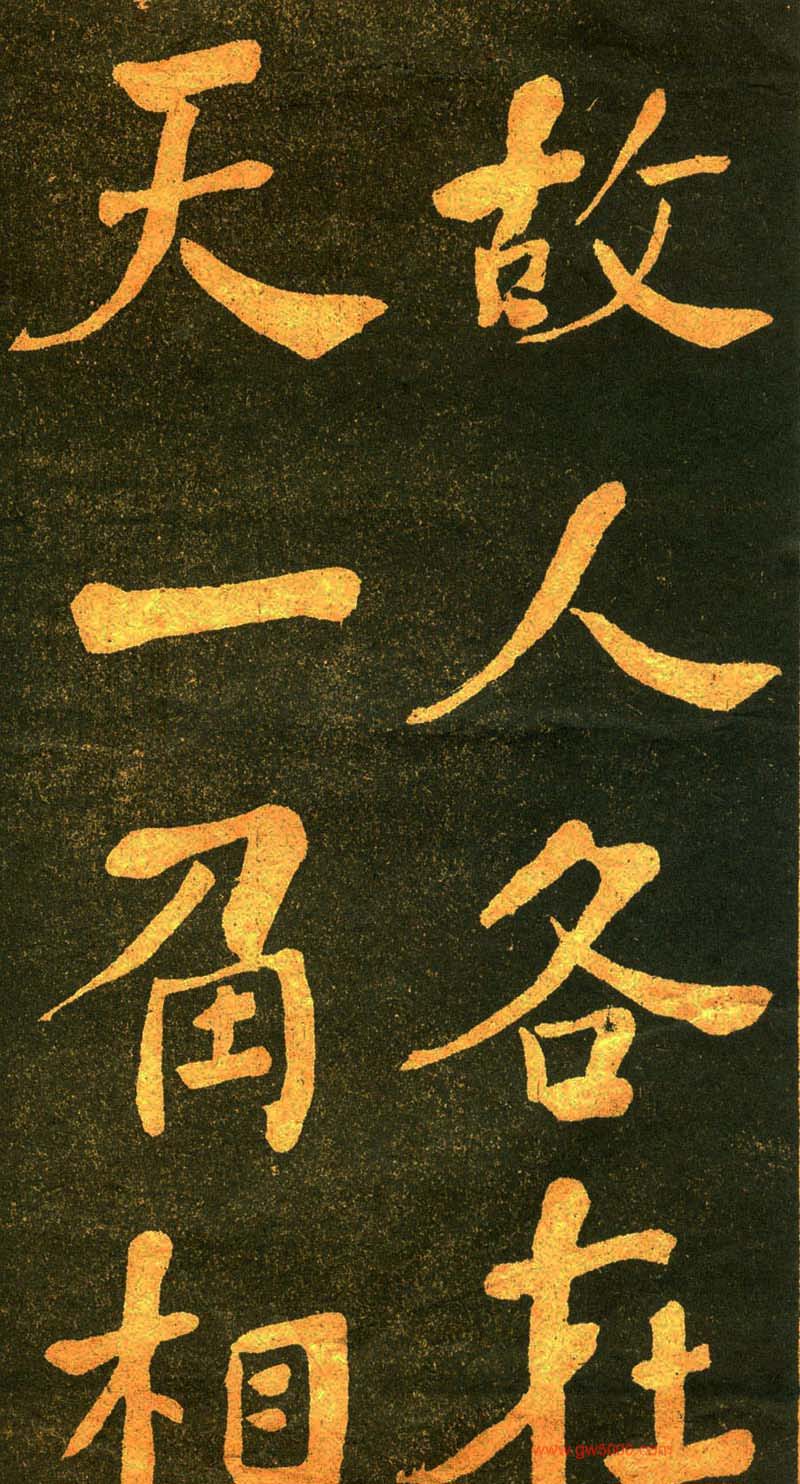 故人各在
天一角相
www.gw5000.com